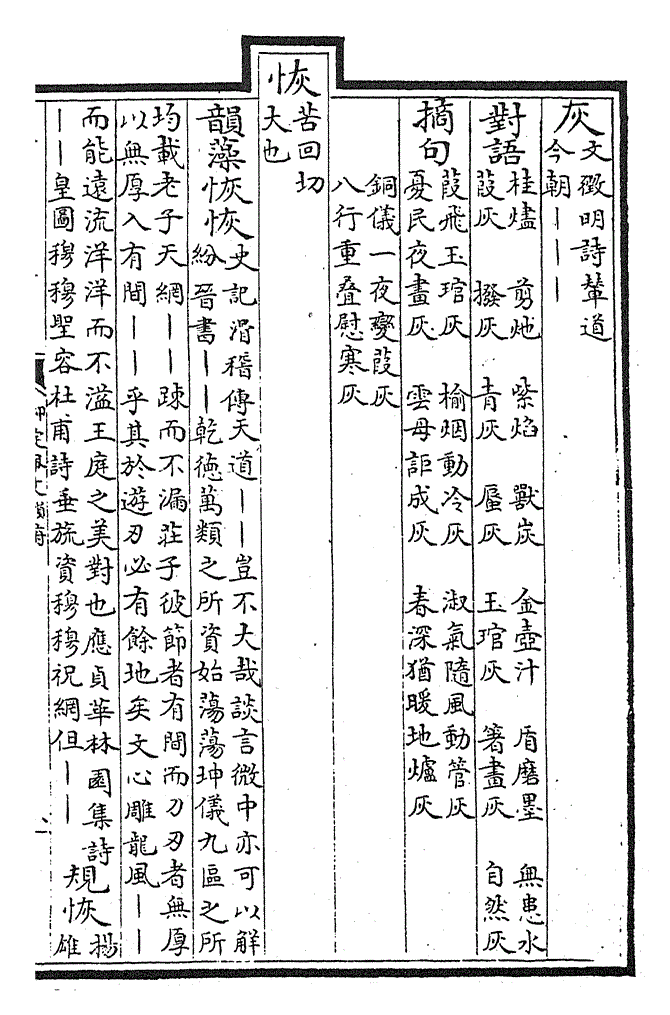 灰 文徵明詩輦道
今朝｜｜｜
對語 桂燼 剪灺 紫焰 獸炭 金壺汁 盾磨墨 無患水
葭灰 撥灰 青灰 蜃灰 玉琯灰 箸畫灰 自然灰
摘句 葭飛玉琯灰 榆烟動冷灰 淑氣隨風動管灰
憂民夜畫灰 雲母詎成灰 春深猶暖地爐灰
銅儀一夜變葭灰
八行重叠慰寒灰
恢 苦回切
大也
韻藻 恢恢 史記滑稽傳天道｜｜豈不大哉談言微中亦可以解
紛晉書｜｜乾徳萬類之所資始蕩蕩坤儀九區之所
均載老子天網｜｜踈而不漏莊子彼節者有間而刀刃者無厚
以無厚入有間｜｜乎其於遊刃必有餘地矣文心雕龍風｜｜
而能遠流洋洋而不溢王庭之美對也應貞華林園集詩
｜｜皇圖穆穆聖容杜甫詩垂旒資穆穆祝網但｜｜ 規恢 揚
雄